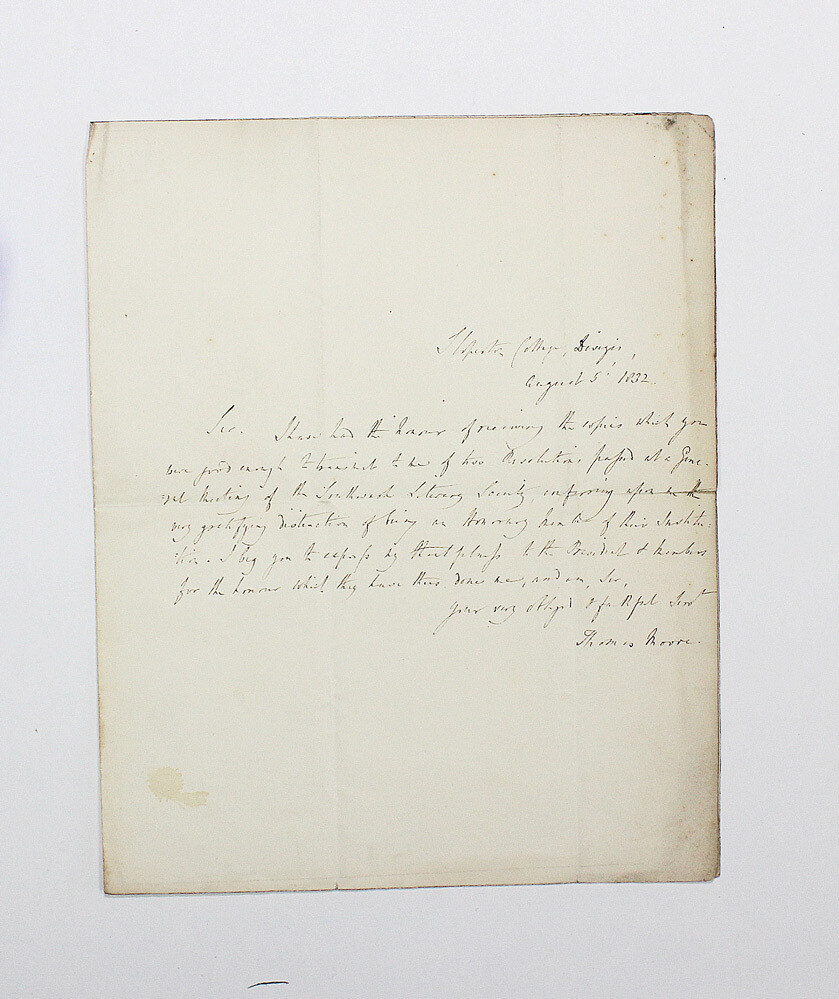 Sloperton Cottage, Devizes,
August 5, 1832.
Sir. I have had the honour of receiving the copies which you
were good enough to transmit to me of two Resolutions passed at a Gene-
ral Meeting of the Southwark Literary Society, conferring upon me the
very gratifying distinction of being an Honorary Member of their Institu-
tion. I beg you to express my thankfulness to the President & Members
for the honour which they have thus done me, and am, Sir,
Your very oblig'd & Servt
Thomas Moore.